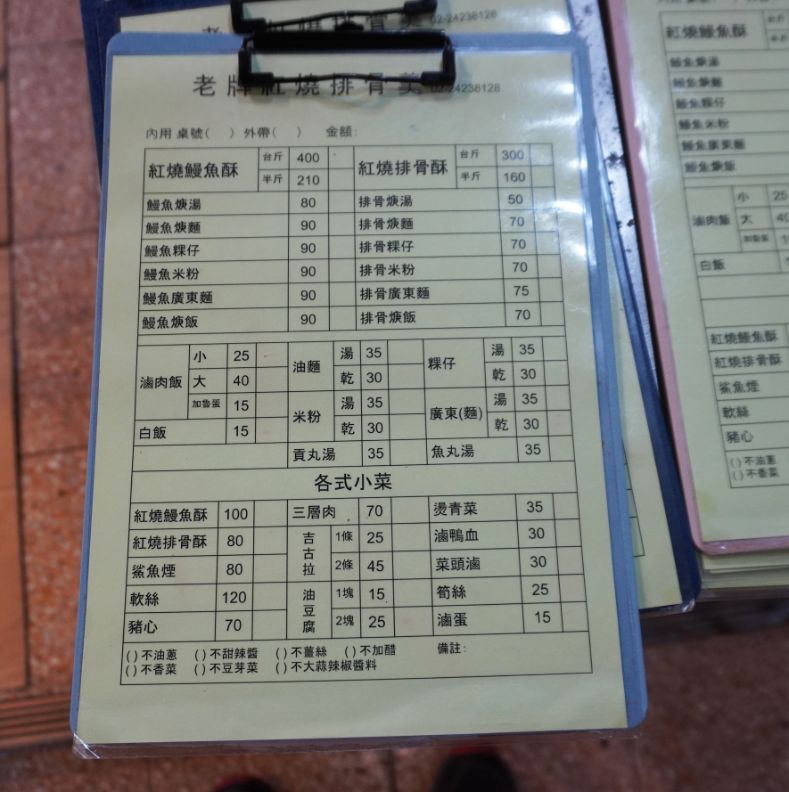 02-24238128
老牌紅燒排骨羹 02-24238128
內用 桌號( ) 外帶( ) 金額:
紅燒鰻魚酥 台斤 400 紅燒排骨酥 台斤 300
半斤 210 半斤 160
鰻魚焿湯 80 排骨焿湯 50
鰻魚焿麵 90 排骨焿麵 70
鰻魚粿仔 90 排骨粿仔 70
鰻魚米粉 90 排骨米粉 70
鰻魚廣東麵 90 排骨廣東麵 75
鰻魚焿飯 90 排骨焿飯 70
滷肉飯 小 25 油麵 湯 35 粿仔 湯 35
大 40 乾 30 乾 30
加魯蛋 15 米粉 湯 35 廣東(麵) 湯 35
白飯 15 乾 30 乾 30
貢丸湯 35 魚丸湯 35
各式小菜
紅燒鰻魚酥 100 三層肉 70 燙青菜 35
紅燒排骨酥 80 吉古拉 1條 25 滷鴨血 30
鯊魚煙 80 2條 45 菜頭滷 30
軟絲 120 油豆腐 1塊 15 筍絲 25
豬心 70 2塊 25 滷蛋 15
( ) 不油蔥 ( ) 不甜辣醬 ( ) 不薑絲 ( ) 不加醋 備註:
( ) 不香菜 ( ) 不豆芽菜 ( ) 不大蒜辣椒醬料
紅燒鰻魚酥 台斤
半斤
鰻魚焿湯
鰻魚焿麵
鰻魚粿仔
鰻魚米粉
鰻魚廣東麵
鰻魚焿飯
滷肉飯 小 25
大
加魯蛋
白飯
紅燒鰻魚酥
紅燒排骨酥
鯊魚煙
軟絲
豬心
( ) 不油蔥
( ) 不香菜